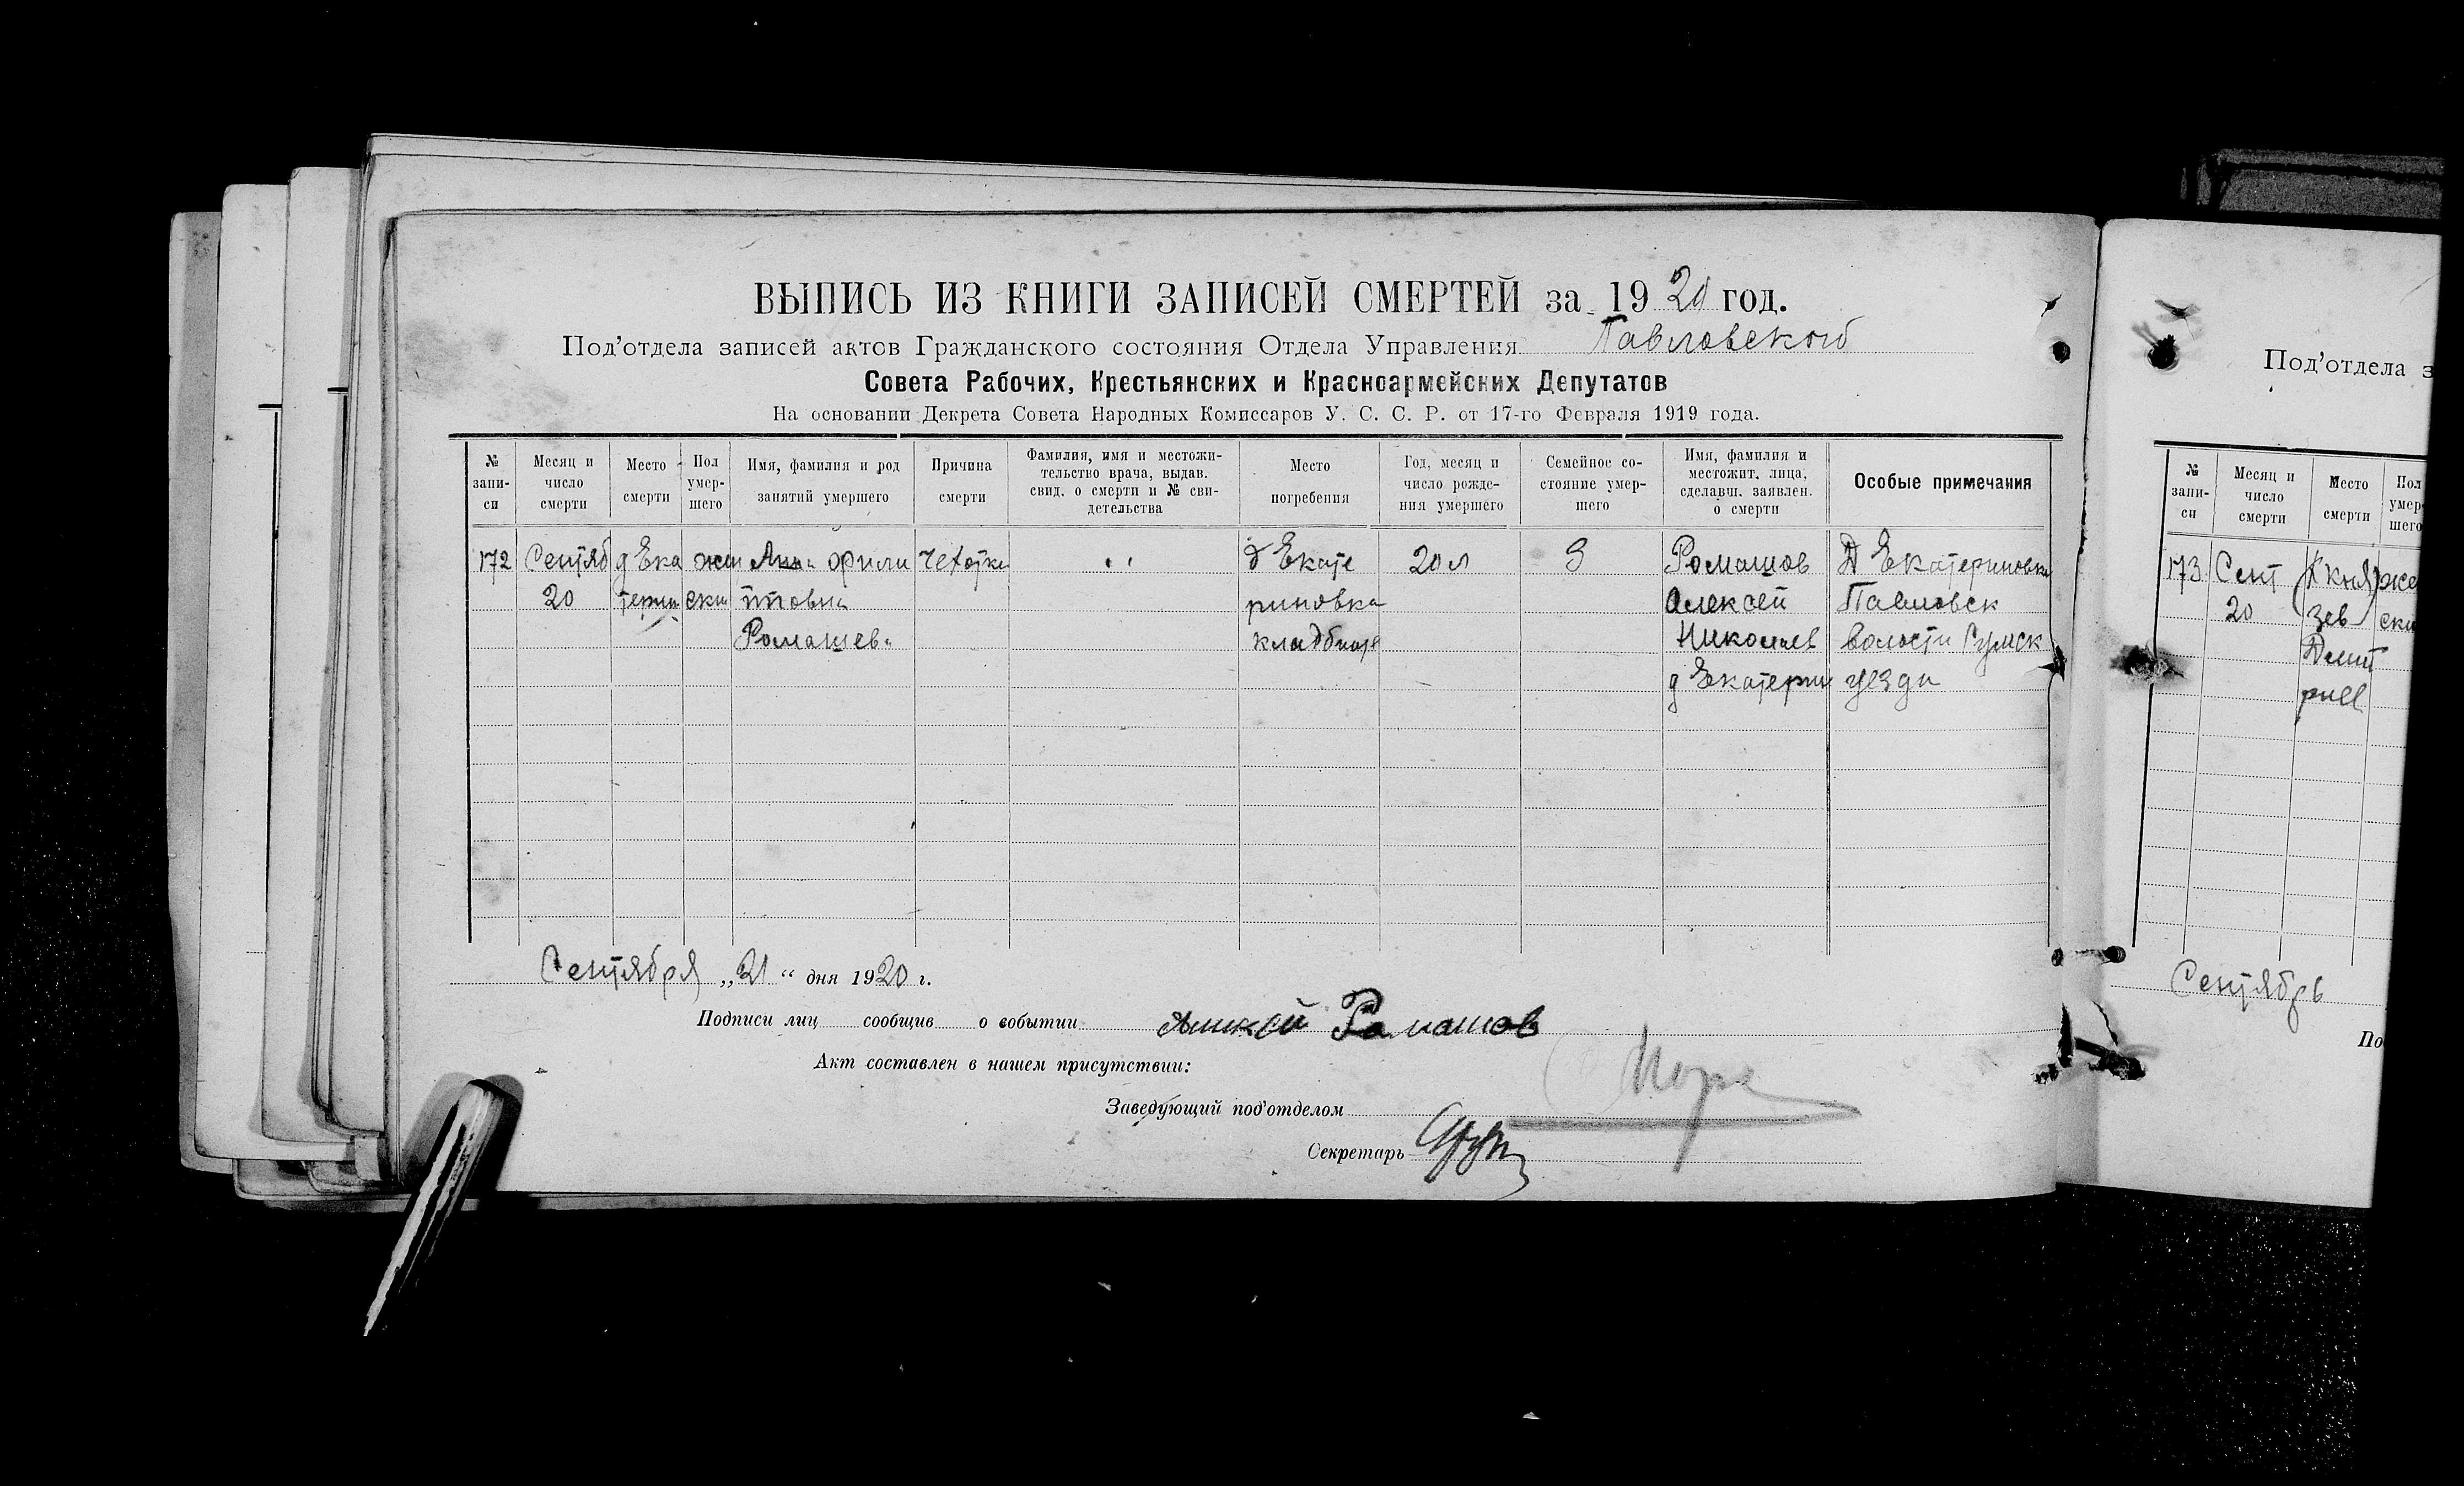 ВЫПИСЬ ИЗ КНИГИ ЗАПИСЕЙ СМЕРТЕЙ за 1920 год.
Под'отдела записей актов Гражданского состояния Отдела Управления Павловской
Совета Рабочих, Крестьянских и Красноармейских Депутатов
На основании Декрета Совета Народных Комиссаров У. С. С. Р. от 17-го Февраля 1919 года.
№ запи-си
Месяц и число смерти
Место смерти
Пол умер-шего
Имя, фамилия и род занятий умершего
Причина смерти
Фамилия, имя и местожи-тельство врача, выдав. свид. о смерти и № сви-детельства
Место погребения
Год, месяц и число рожде-ния умершего
Семейное со-стояние умер-шего
Имя, фамилия и местожит. лица, сделавш. заявлен. о смерти
Особые примечания
172 Сентяб д Ека жен Анна Фили Чехотке д Екате 20 л З Ромашов Д Екатериновки
20 терин ски повна риновка Алексей Павловск
Ромашева кладбище Николаев волости Сумск
д Екатерин уезда
Сентября „21“ дня 1920 г.
Подписи лиц сообщив о событии Ромашов
Акт составлен в нашем присутствии:
Заведующий под'отделом
Секретарь
Под'отдела з
№ запи-си
Месяц и число смерти
Место смерти
Пол умер-шего
173 Сент Х кня же
20 зев ски
Дмит
риев
Сентябрь
По